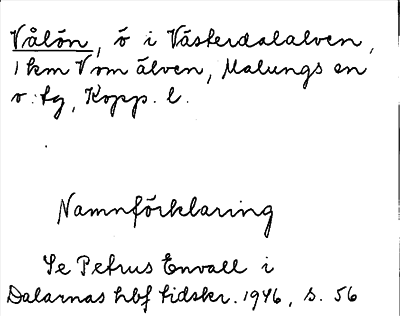 Vålön, ö i Västerdalälven,
1 km V om älven, Malungs sn
o. tg, Kopp. l.
Namnförklaring
Se Petrus Envall i
Dalarnas hbf tidskr. 1946, s. 56